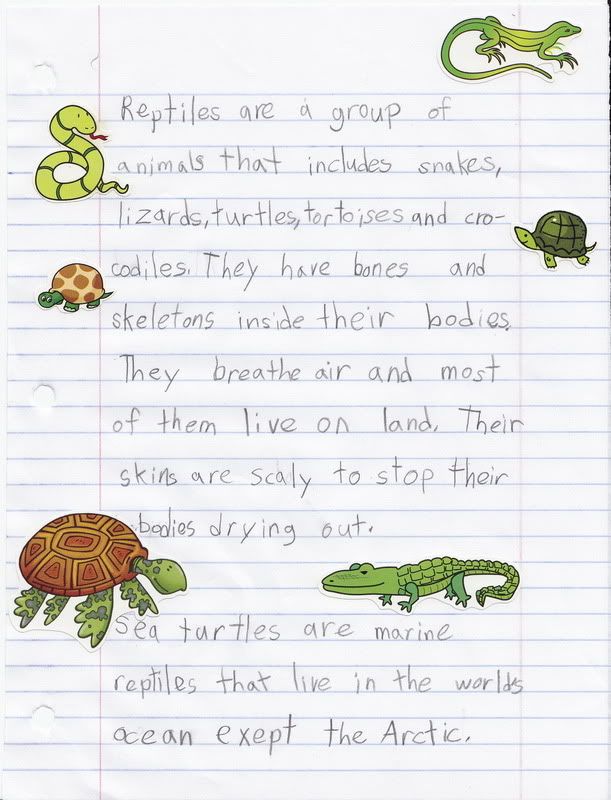 Reptiles are a group of
animals that includes snakes,
lizards, turtles, tortoises and cro-
codiles. They have bones and
skeletons inside their bodies.
They breathe air and most
of them live on land. Their
skins are scaly to stop their
bodies drying out.
Sea turtles are marine
reptiles that live in the worlds
ocean exept the Arctic.